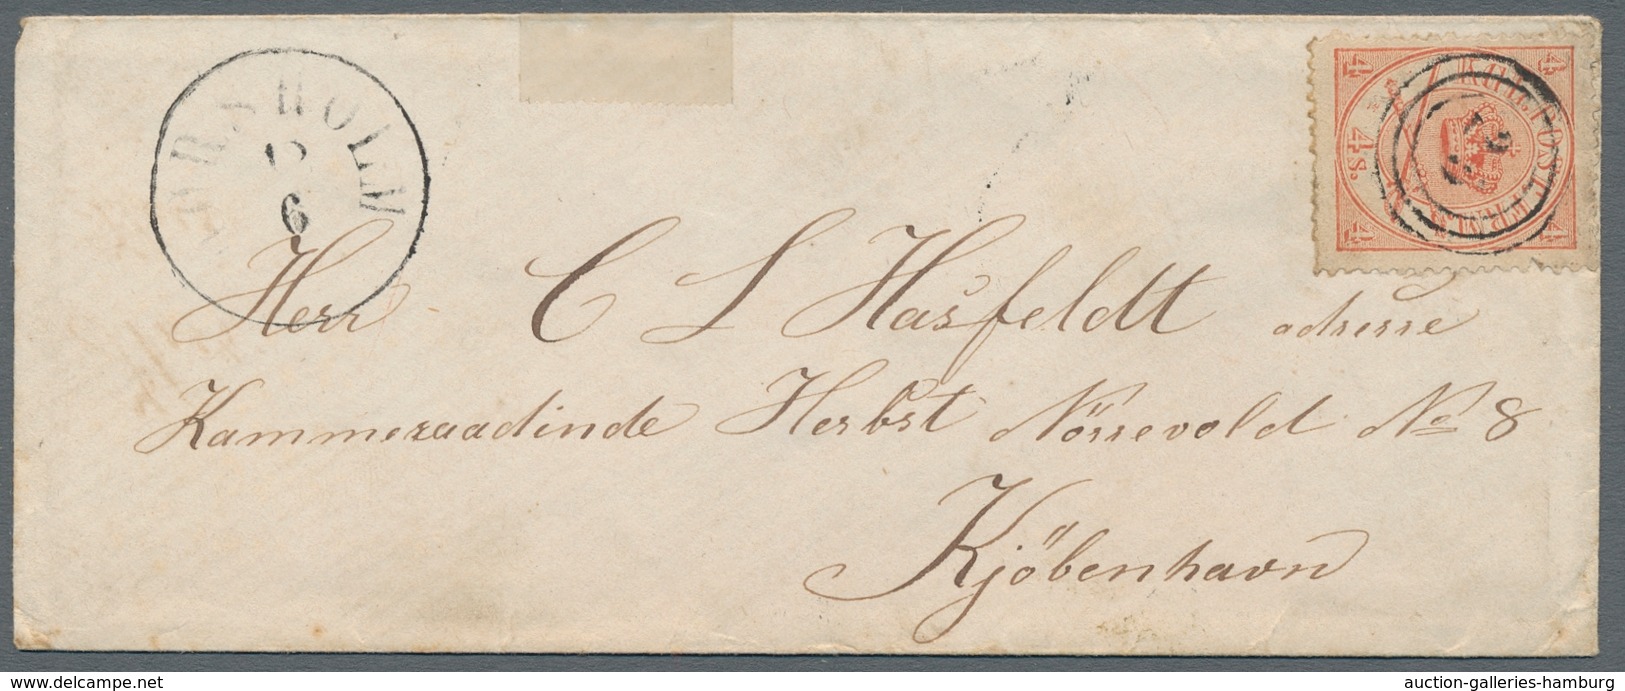 HOLM
6
4 4
KGL. POST FRM
4 s.
4 4
Herr C L Hasfeldt adresse
Kammeraadinde Herbst Nörrevold No 8
Kjöbenhavn
www.delcampe.net
auction-galleries-hamburg